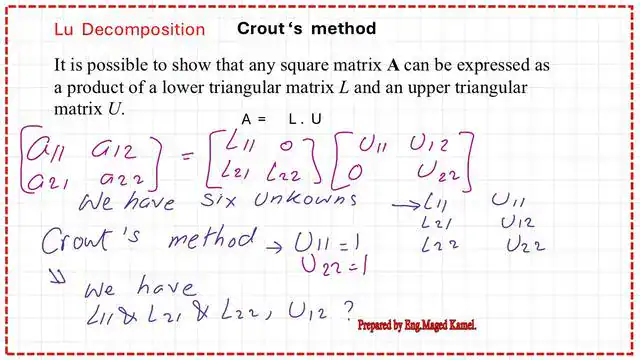 Lu Decomposition Crout's method
It is possible to show that any square matrix A can be expressed as
a product of a lower triangular matrix L and an upper triangular
matrix U.
A = L . U
[a11 a12] = [L11 0] [U11 U12]
[a21 a22] [L21 L22] [0 U22]
We have six unkowns → L11 U11
L21 U12
Crout's method → U11 = 1 L22 U22
U22 = 1
⇓ we have
L11 & L21 & L22, U12 ?
Prepared by Eng.Maged Kamel.